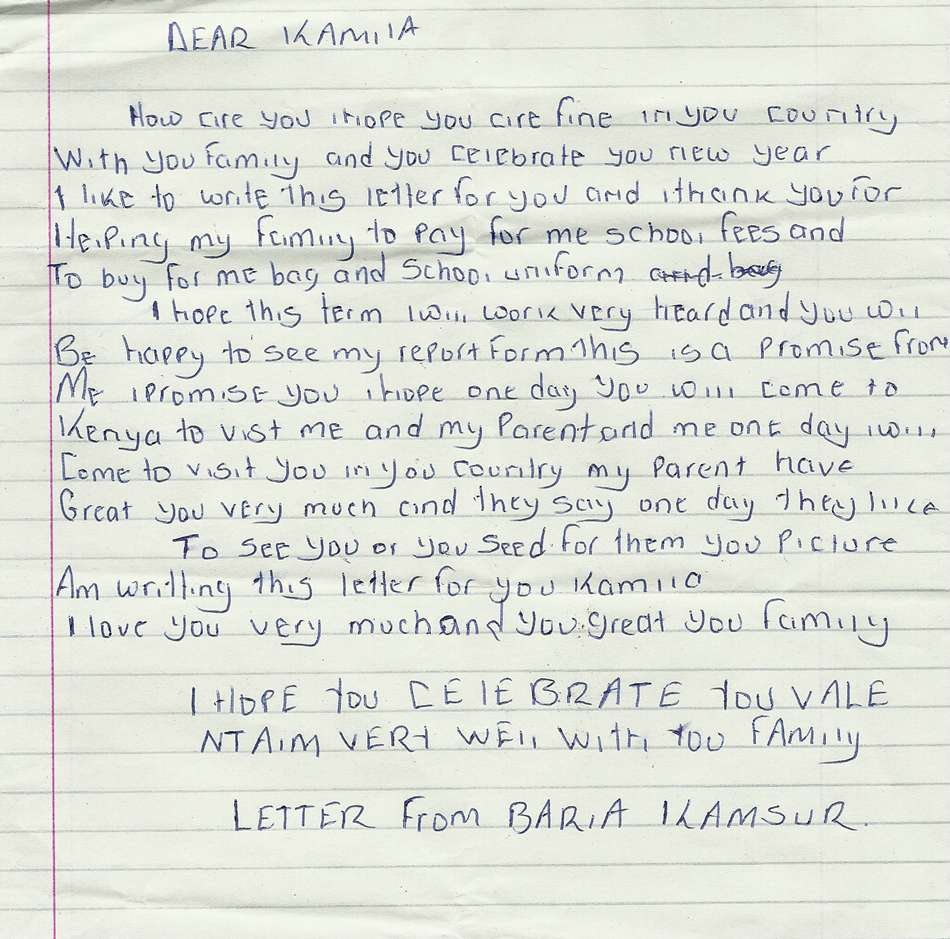 DEAR KAMIlA
How are you ihope you are fine in you country
With you family and you celebrate you new year
I like to write this letter for you and ithank you for
Helping my family to pay for me school fees and
To buy for me bag and School uniform and bag
I hope this term iwill work very heard and you will
Be happy to see my report form This is a promise from
Me ipromise you ihope one day you will come to
Kenya to vist me and my Parent and me one day iwill
Come to visit you in you country my parent have
Great you very much and they say one day they like
To see you or you seed for them you Picture
Am writting this letter for you Kamila
I love you very much and you great you family
I HOPE YOU CElEBRATE YOU VALE
NTAiM VERY WEll With YOU FAMily
LETTER From BARiA KAMSUR.